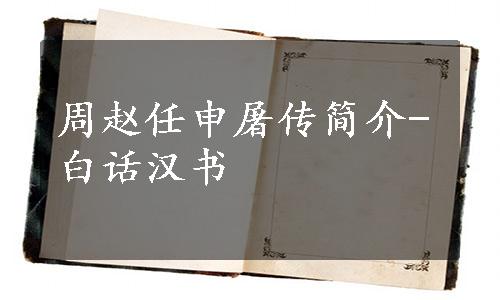 周赵任申屠传简介-
白话汉书